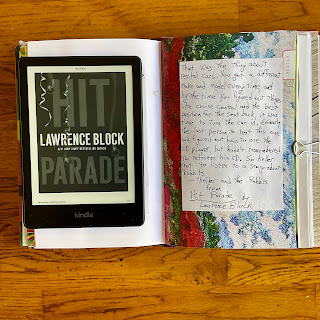 HIT
LAWRENCE BLOCK
PARADE
kindle
That was the thing about
rental cars. You got a different
make and model every time, and
by the time you figured out
the cruise control and the best
position for the seat back, it was
time to turn the car in. Evidently
the last person to rent this one
had figured out how to use the
CD player, but hadn't remembered
to retrieve his CD. So Keller
got to listen to a song about
rabbits.
Keller and the Rabbits
from
Hit Parade
by
Lawrence Block